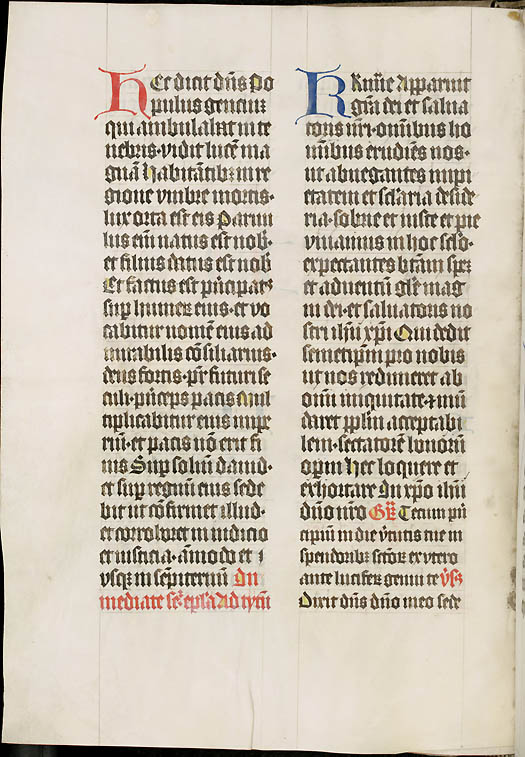 Hec dicit dn̄s Po
pulus gentiuꝫ
qui ambulabat in te
nebris· vidit lucē ma
gnā habitātibꝫ in re
gione vmbre mortis·
lux orta est eis Paruu
lus em̄ natus est nob̄·
et filius datus est nob̄
Et factus est pn̄cipatꝰ
suꝑ humerū eius· et vo
cabitur nomē eius ad
mirabilis cōsiliarius·
deus fortis· pr̄ futuri se
culi· pn̄ceps pacis Mul
tiplicabitur eius impe
riū· et pacis nō erit fi
nis Suꝑ soliū dauid·
et suꝑ regnū eius sede
bit ut cōfirmet illud·
et corroboret in iudicio
et iusticia· amodo et
vsqꝫ in sempiternū In
mediate seꝗ̄ ep̄la Ad tytū
Karissīe Apparuit
grā dei et salua
toris nr̄i· omībus ho
mībus erudiēs nos·
ut abnegantes impi
etatem et sclaria deside
ria· sobrie et iuste et pie
viuamus in hoc sclo·
expectantes btām speꝫ
et aduentū glē mag
ni dei· et saluatoris no
stri ihū xp̄i Qui dedit
semetip̄m pro nobis
ut nos redimeret ab
omī iniquitate· ⁊ mū
daret ppl̄m acceptabi
lem· sectatorē bonorū
oꝑum hec loquere et
exhortare In xp̄o ihū
dn̄o nr̄o GR̄ Tecum pn̄
cipiū in die v̓tutis tue in
splendoribꝫ sctōꝝ ex vtero
ante luciferꝫ genui te v̓sꝫ
Dixit dn̄s dn̄o meo sede